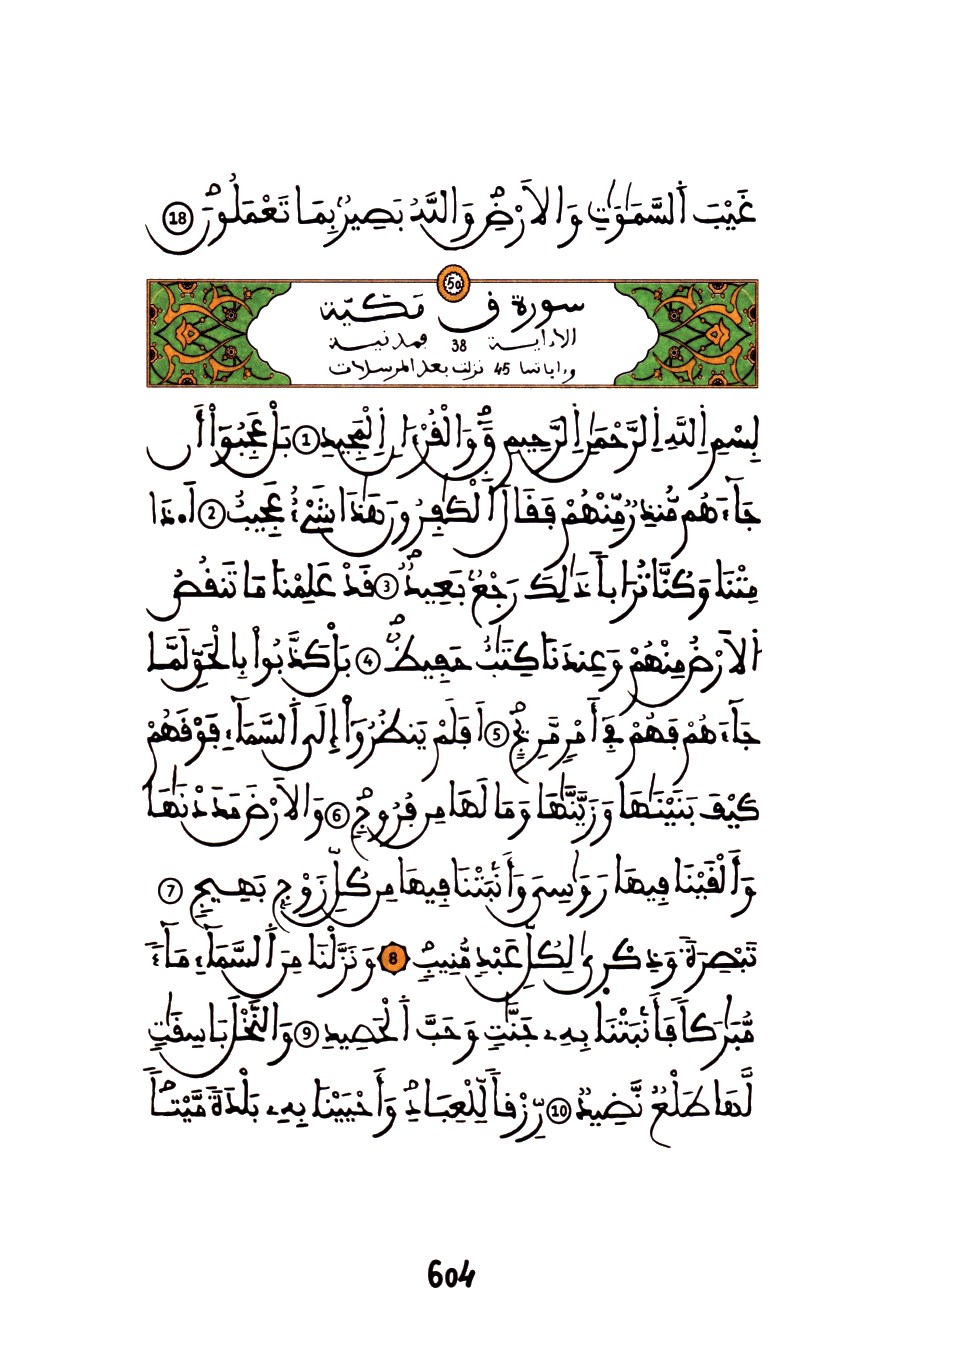 غَيْبَ اَ۬لسَّمَٰوَٰتِ وَالَارْضِۖ وَاللَّهُ بَصِيرُۢ بِمَا تَعْمَلُونَۖ 18
50
سورة ق مكيّة
الا ءاية 38 فمدنية
وءاياتها 45 نزلت بعد المرسلات
بِسْمِ اِ۬للَّهِ اِ۬لرَّحْمَٰنِ اِ۬لرَّحِيمِ قَٓۖ وَالْقُرْءَانِ اِ۬لْمَجِيدِ 1 بَلْ عَجِبُوٓاْ أَن
جَآءَهُم مُّنذِرٞ مِّنْهُمْ فَقَالَ اَ۬لْكَٰفِرُونَ هَٰذَا شَےْءٌ عَجِيبٌ 2 اَ.ذَا
مِتْنَا وَكُنَّا تُرَاباٗ ذَٰلِكَ رَجْعُۢ بَعِيدٞۖ 3 قَدْ عَلِمْنَا مَا تَنقُصُ
اُ۬لَارْضُ مِنْهُمْ وَعِندَنَا كِتَٰبٌ حَفِيظٞۖ 4 بَلْ كَذَّبُواْ بِالْحَقِّ لَمَّا
جَآءَهُمْ فَهُمْ فِےٓ أَمْرٖ مَّرِيجٍۖ 5 اَفَلَمْ يَنظُرُوٓاْ إِلَى اَ۬لسَّمَآءِ فَوْقَهُمْ
كَيْفَ بَنَيْنَٰهَا وَزَيَّنَّٰهَا وَمَا لَهَا مِن فُرُوجٖۖ 6 وَالَارْضَ مَدَدْنَٰهَا
وَأَلْقَيْنَا فِيهَا رَوَٰسِيَ وَأَنۢبَتْنَا فِيهَا مِن كُلِّ زَوْجِۢ بَهِيجٖ 7
تَبْصِرَةٗ وَذِكْرۭيٰ لِكُلِّ عَبْدٖ مُّنِيبٖۖ 8 وَنَزَّلْنَا مِنَ اَ۬لسَّمَآءِ مَآءٗ
مُّبَٰرَكاٗ فَأَنۢبَتْنَا بِهِۦ جَنَّٰتٖ وَحَبَّ اَ۬لْحَصِيدِ 9 وَالنَّخْلَ بَاسِقَٰتٖ
لَّهَا طَلْعٞ نَّضِيدٞ 10 رِّزْقاٗ لِّلْعِبَادِۖ وَأَحْيَيْنَا بِهِۦ بَلْدَةٗ مَّيْتاٗۖ
604